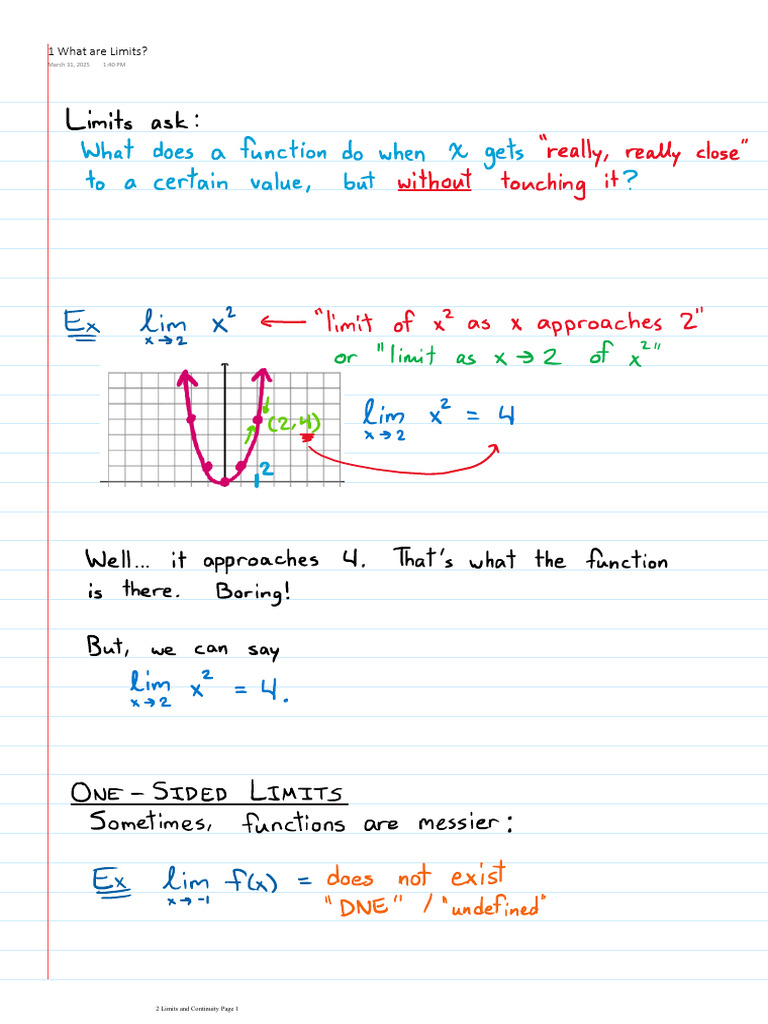 1 What are Limits?
March 31, 2025 1:40 PM
Limits ask:
What does a function do when x gets "really, really close"
to a certain value, but without touching it?
Ex lim x→2 x² ← "limit of x² as x approaches 2"
or "limit as x→2 of x²"
(2,4)
2
lim x→2 x² = 4
Well... it approaches 4. That's what the function
is there. Boring!
But, we can say
lim x→2 x² = 4.
ONE-SIDED LIMITS
Sometimes, functions are messier:
Ex lim x→-1 f(x) = does not exist
"DNE" / "undefined"
2 Limits and Continuity Page 1